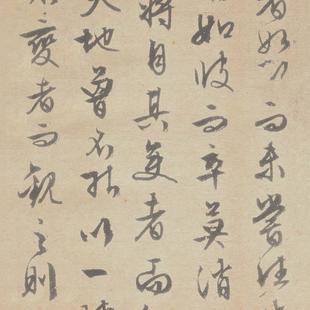 者如斯而未嘗往
如彼而卒莫消
將自其變者而
天地曾不能以一瞬
不變者而觀之則